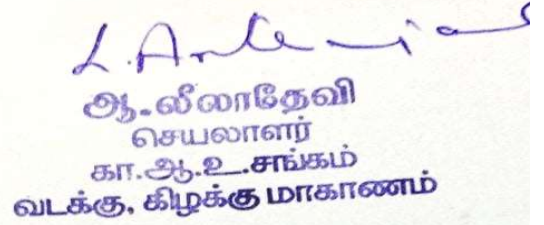 ஆ.லீலாதேவி
செயலாளர்
கா.ஆ.உ.சங்கம்
வடக்கு, கிழக்கு மாகாணம்